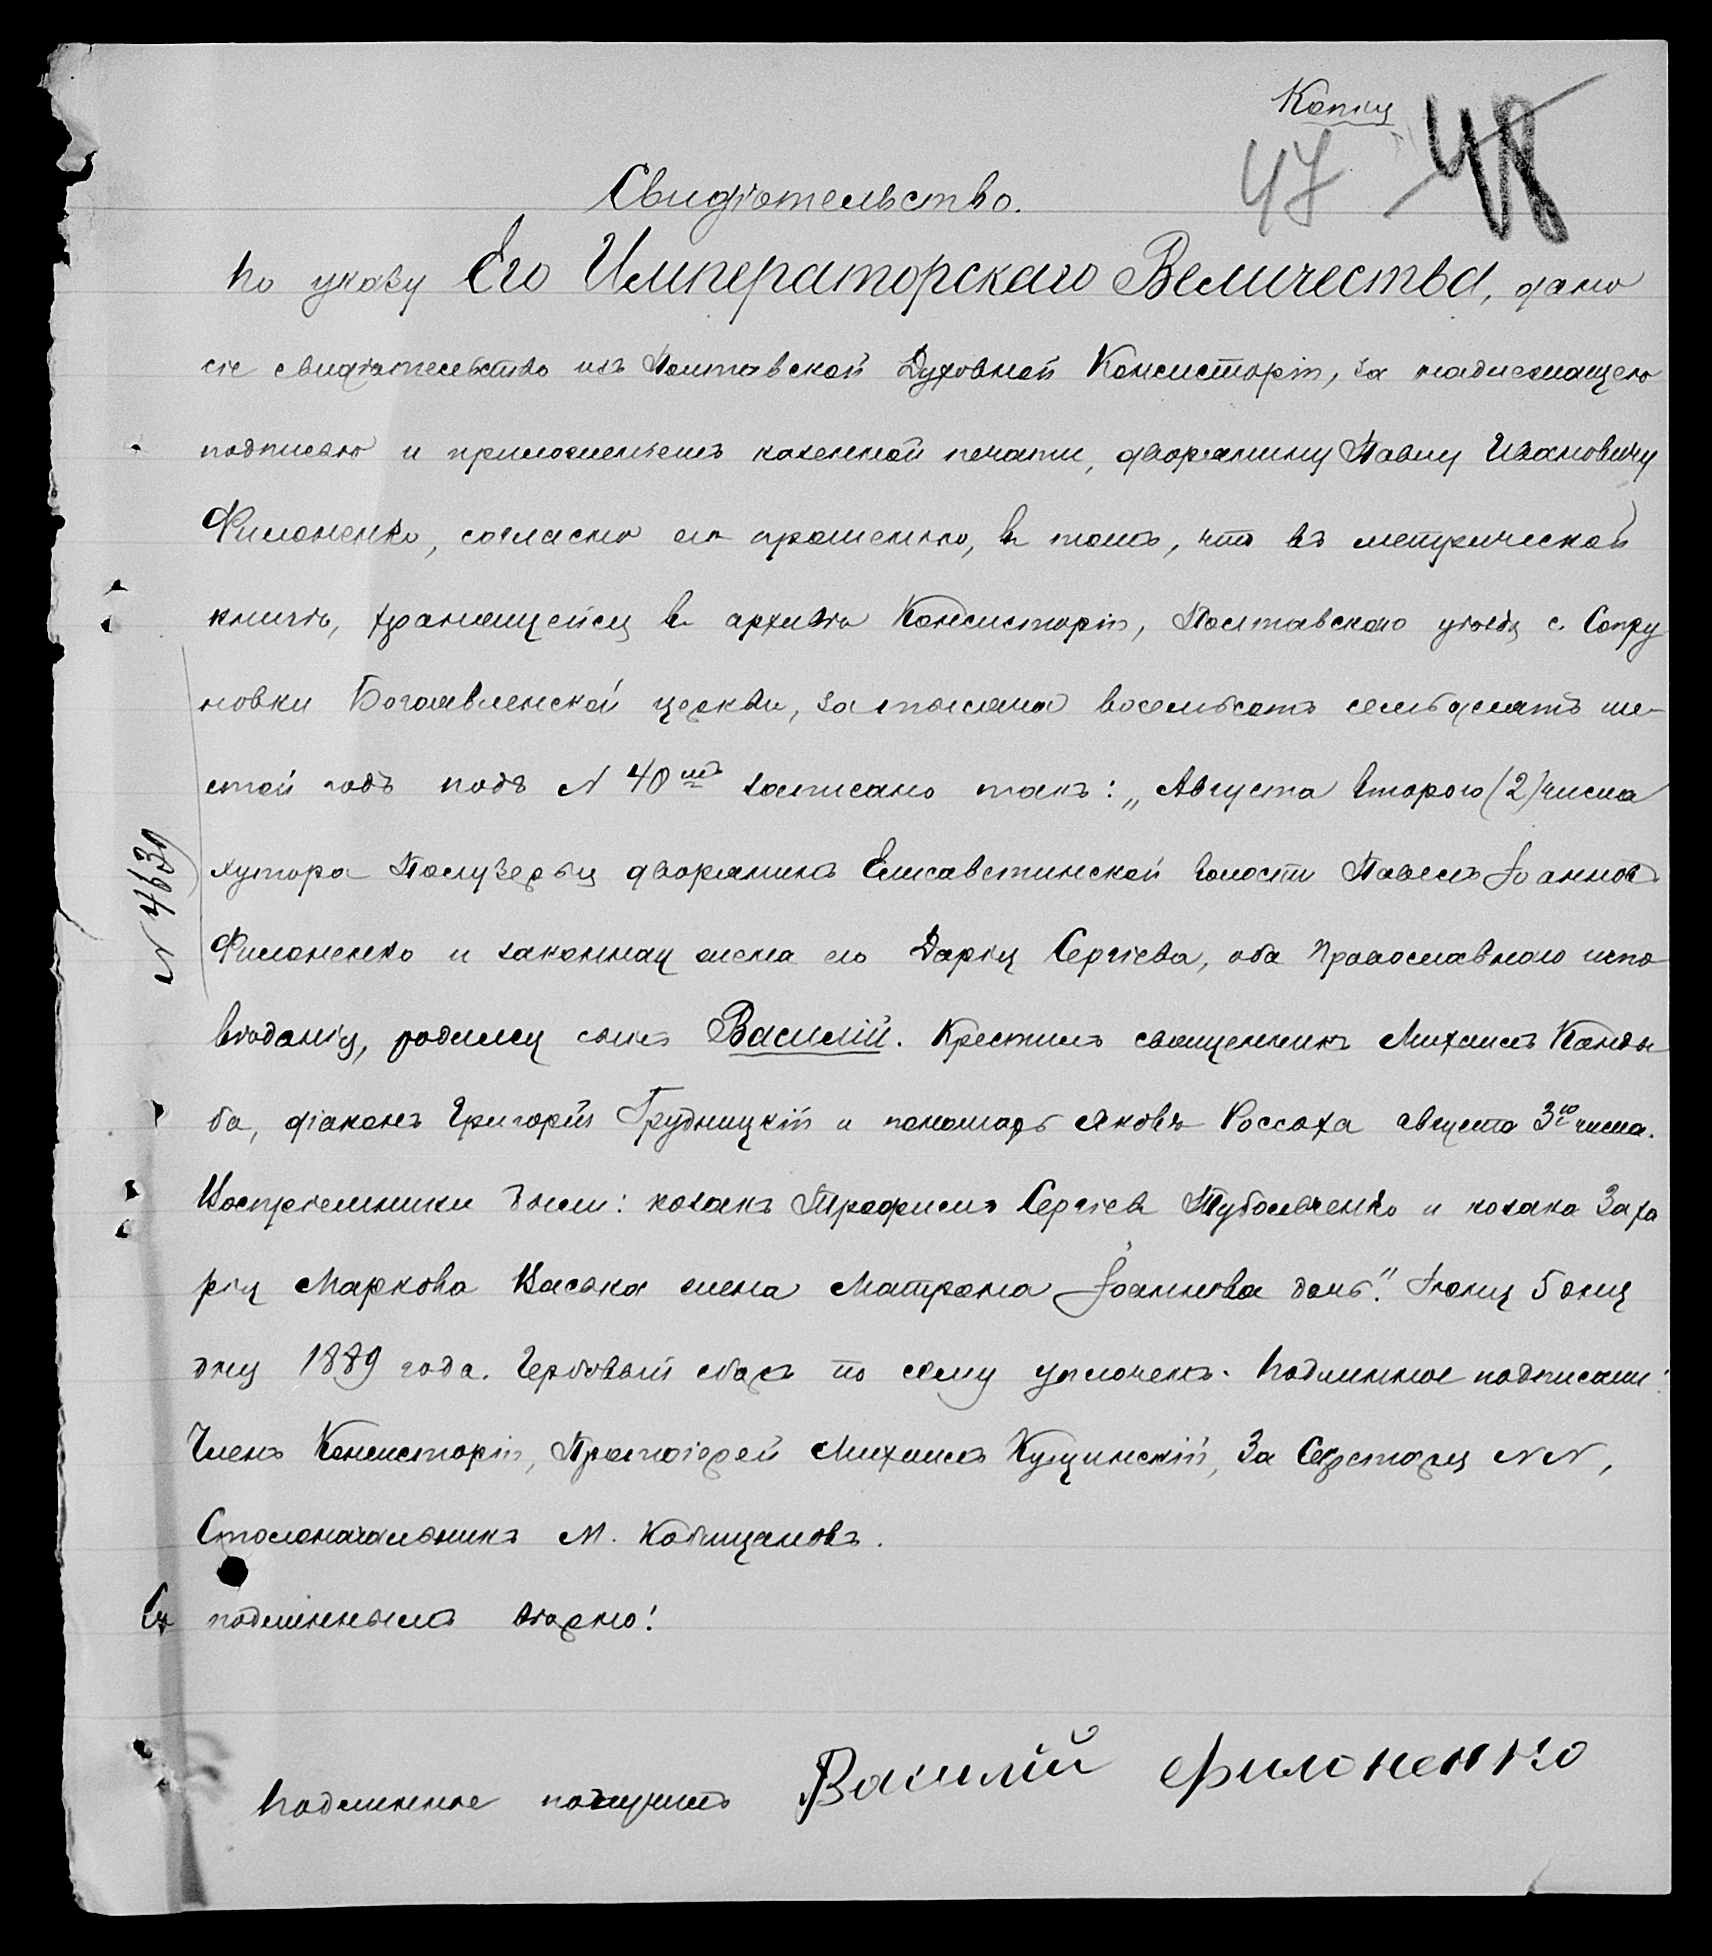 Копія
47 48
Свидѣтельство.
По указу Его Императорскаго Величества, дано
сіе свидѣтельство изъ Полтавской Духовной Консисторіи, за надлежащею
подписью и приложеніемъ казенной печати, дворянину Павлу Ивановичу
Филоненко, согласно его прошенію, въ томъ, что въ метрической
книгѣ, хранящейся въ архивѣ Консисторіи, Полтавскаго уѣзда с. Сопру
новки Богоявленской церкви, за тысяча восемьсотъ семьдесятъ ше-
стой годъ подъ N 40мъ записано такъ: „Августа второго (2) числа
хутора Полузерья дворянинъ Елисаветинской волости Павелъ Іоанновъ
Филоненко и законная жена его Дарія Сергіева, оба православнаго испо
вѣданія, родился сынъ Василій. Крестилъ священникъ Михаилъ Канды
ба, діаконъ Григорій Грудницкій и пономарь Яковъ Россоха августа 3го числа.
Воспріемники были: козакъ Трофимъ Сергіевъ Тубольченко и козака Заха
рія Маркова Васька жена Матрона Іоаннова дочь." Іюня 5 дня
дня 1889 года. Гербовый сборъ по сему уплоченъ. Подлинное подписали:
Членъ Консисторіи, Протоіерей Михаилъ Кущинскій, За Секретаря NN,
Столоначальникъ М.
Съ подлиннымъ вѣрно!
Подлинное получилъ Василій Филоненко
N 4639